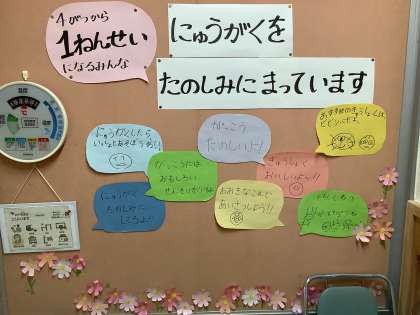 4がつから
1ねんせい
になるみんな
にゅうがくを
たのしみにまっています
にゅうがくしたら
いっしょにあそぼうね!!
がっこう
たのしいよ!
おすすめのきゅうしょくは、
ビビンバだよ。
がっこうには
おもしろい
せんせいがいるよ
きゅうしょく
おいしいよ!!
にゅうがく
たのしみに
しててね!
おおきなこえで
あいさつしよう!!